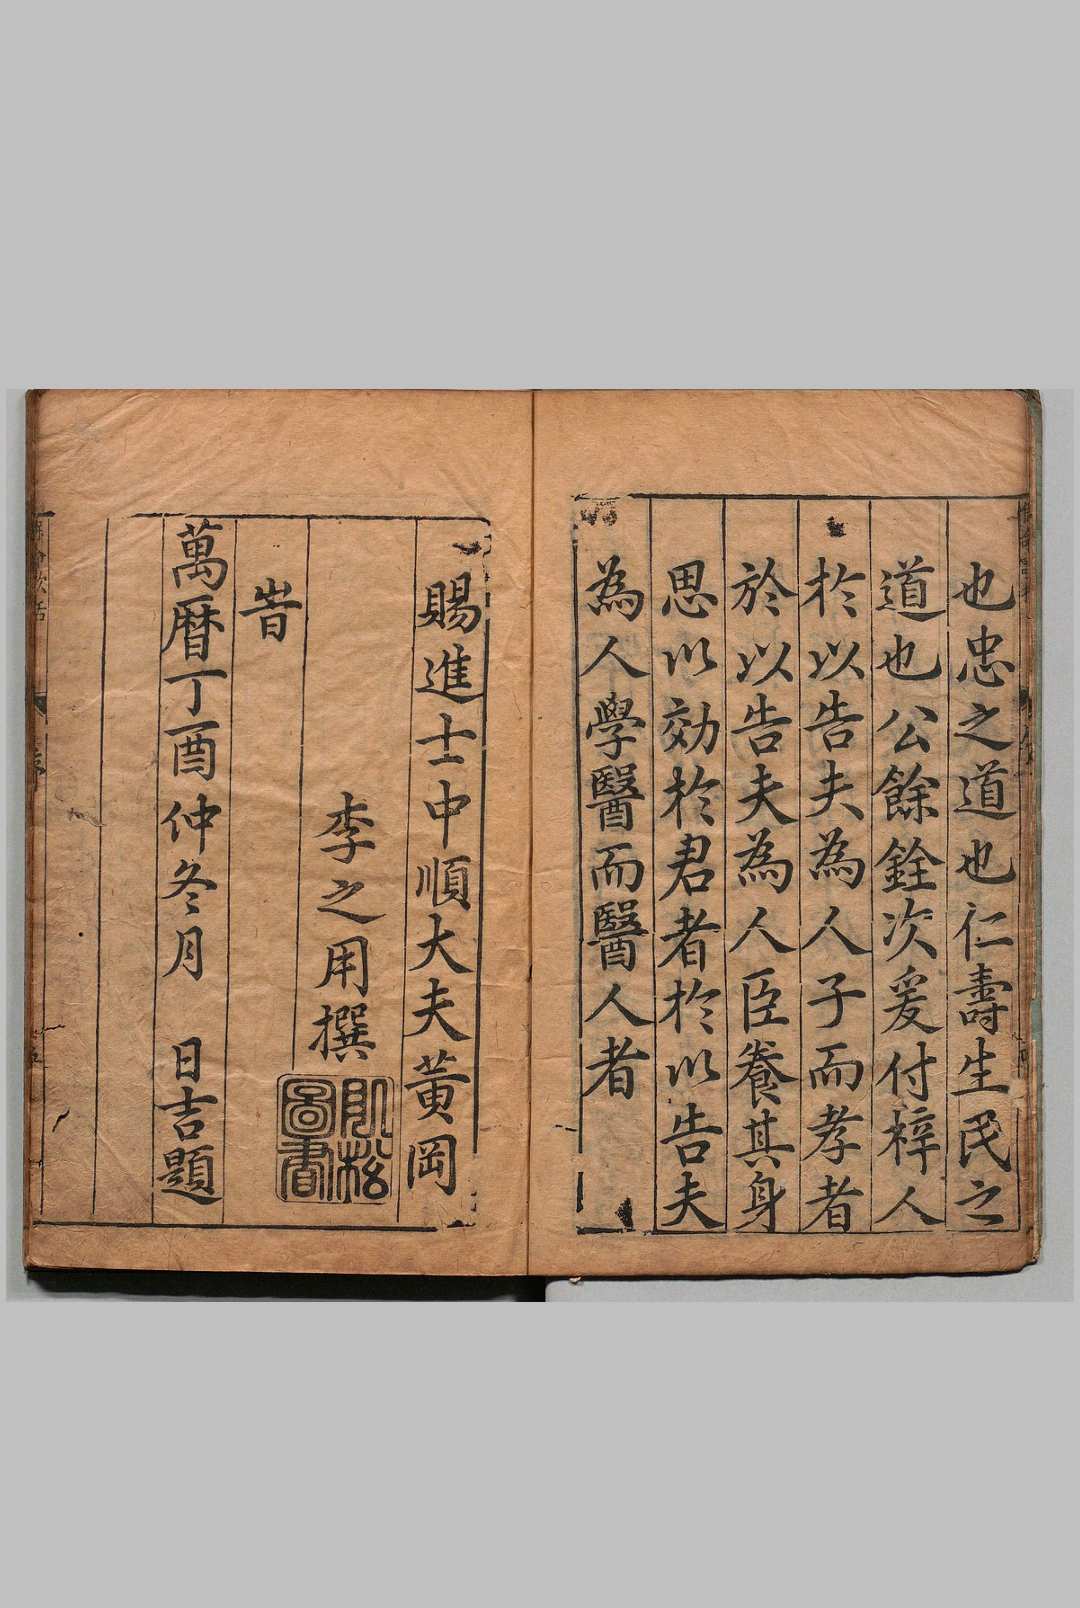 也忠之道也仁壽生民之
道也公餘銓次爰付梓人
於以告夫為人子而孝者
於以告夫為人臣養其身
思以効於君者於以告夫
為人學醫而醫人者
賜進士中順大夫黃岡
李之用撰
旹
萬曆丁酉仲冬月 日吉題